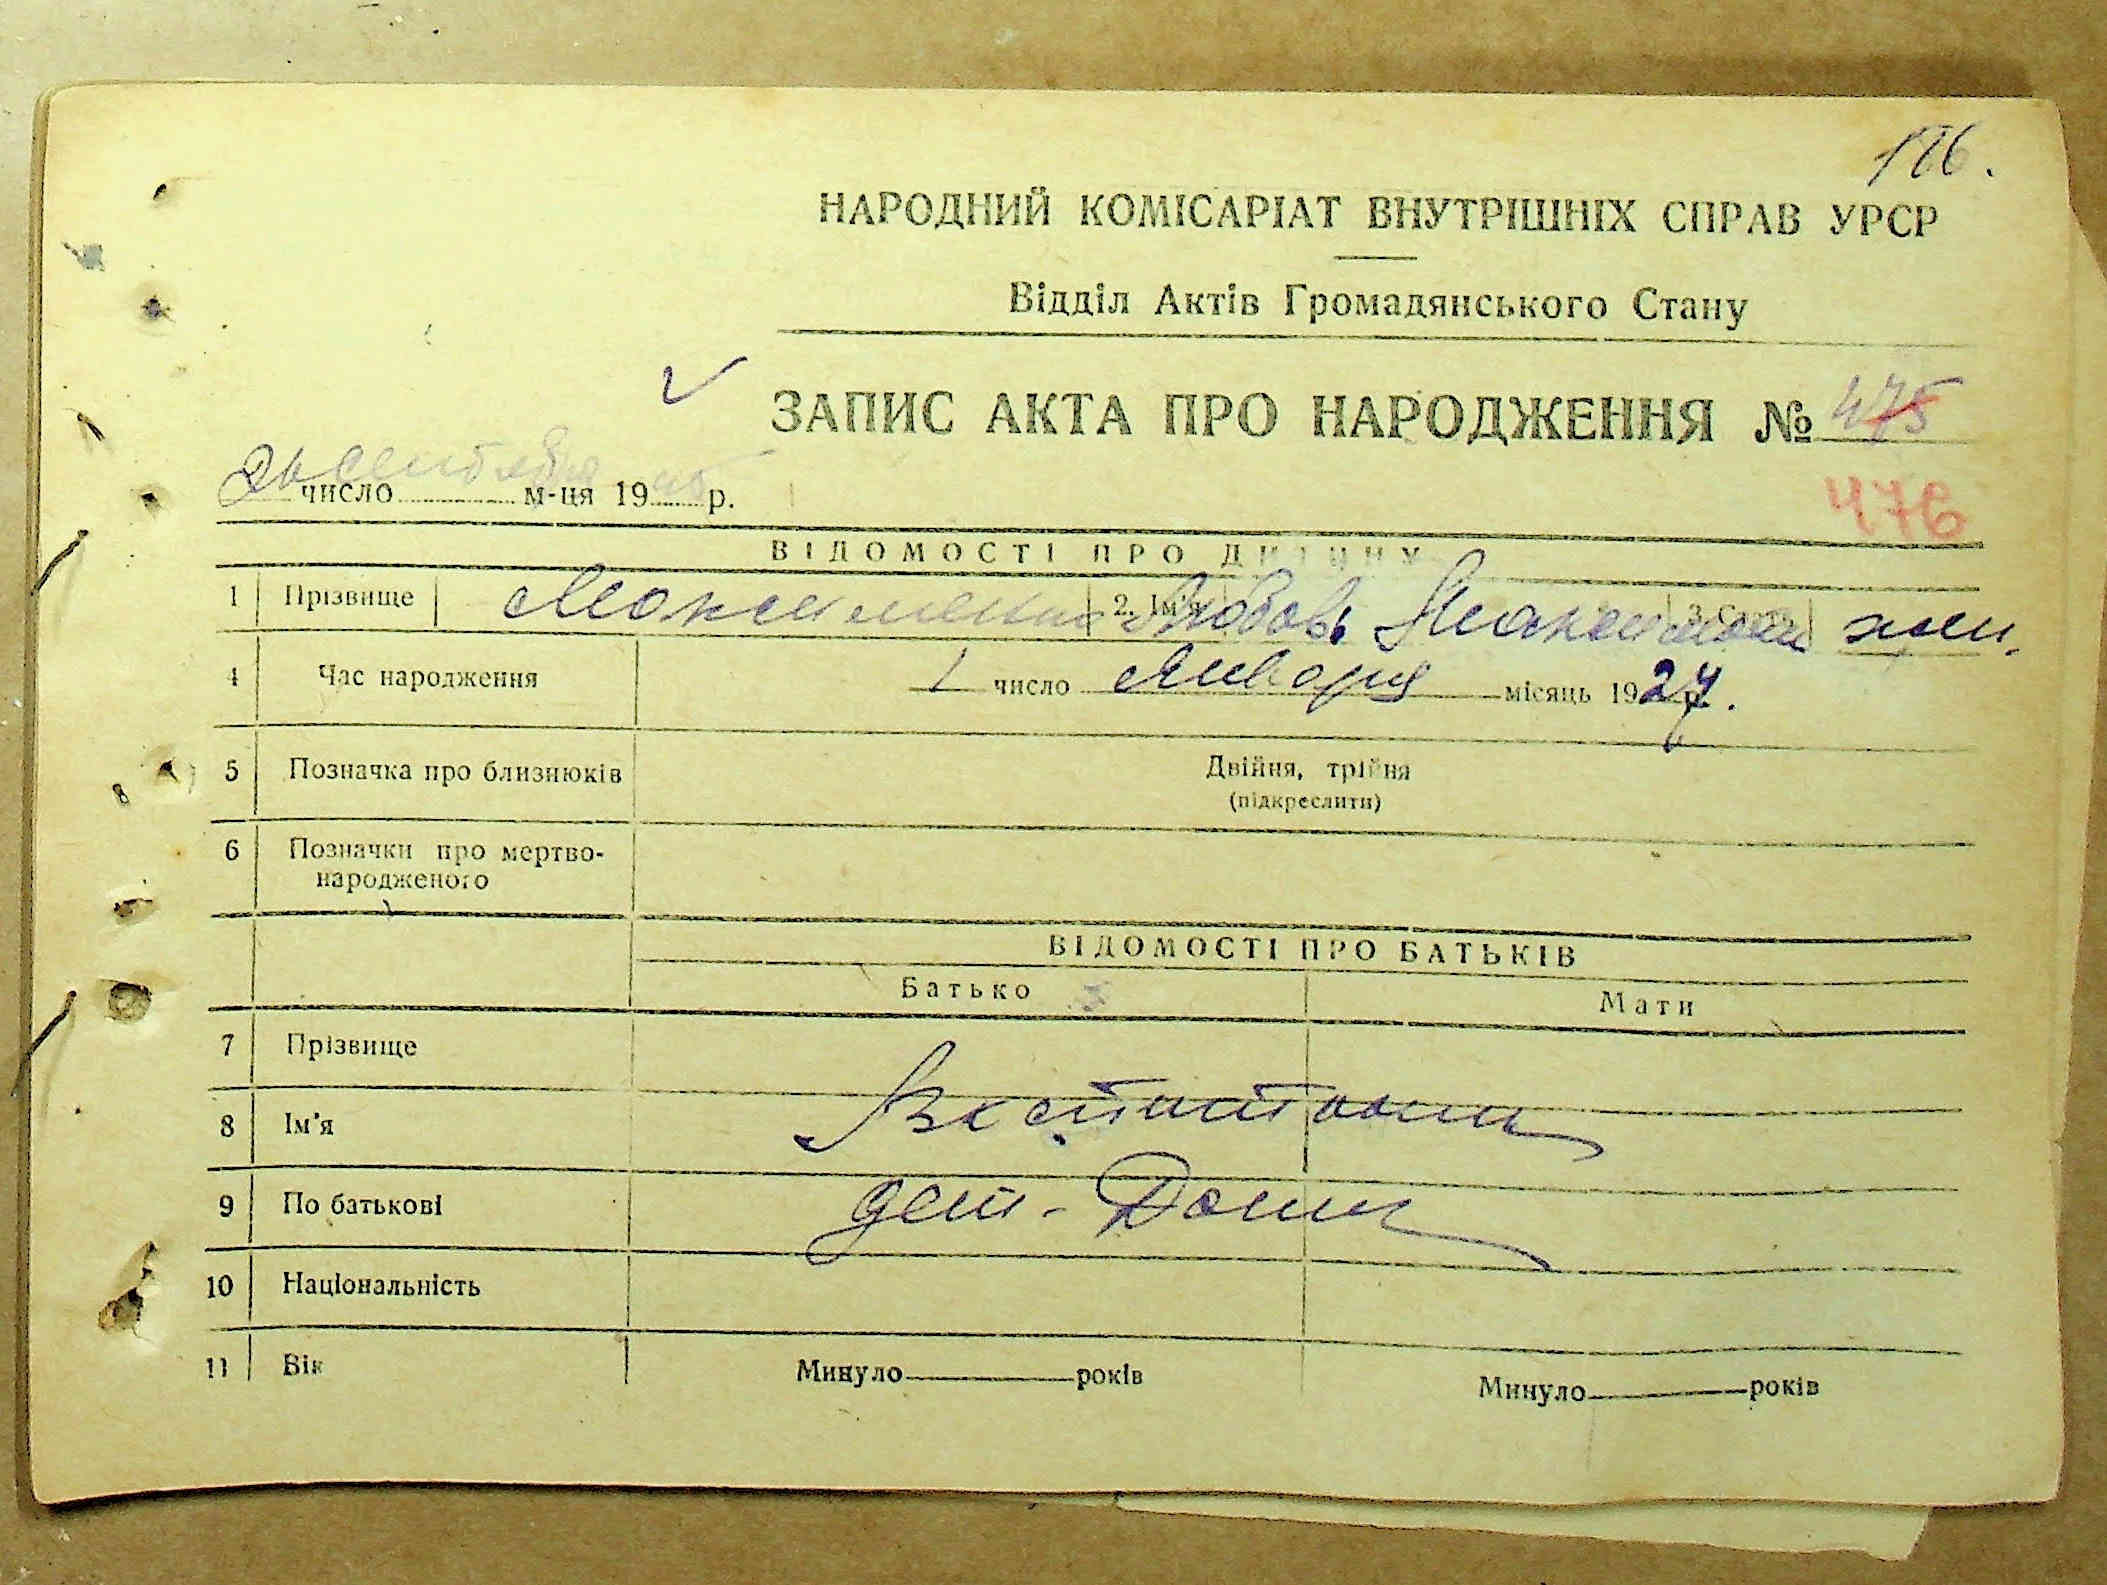 176.
НАРОДНИЙ КОМІСАРІАТ ВНУТРІШНІХ СПРАВ УРСР
Відділ Актів Громадянського Стану
ЗАПИС АКТА ПРО НАРОДЖЕННЯ № 475
476
сентября
число м-ця 19 45 р.
ВІДОМОСТІ ПРО ДИТИНУ
1 Прізвище 2. Ім'я Любовь 3. Стать жен.
4 Час народження 1 число Января місяць 1927 р.
5 Позначка про близнюків Двійня, трійня
(підкреслити)
6 Позначки про мертво-
народженого
ВІДОМОСТІ ПРО БАТЬКІВ
Батько Мати
7 Прізвище
8 Ім'я
9 По батькові дет-Дома
10 Національність
11 Вік Минуло років Минуло років